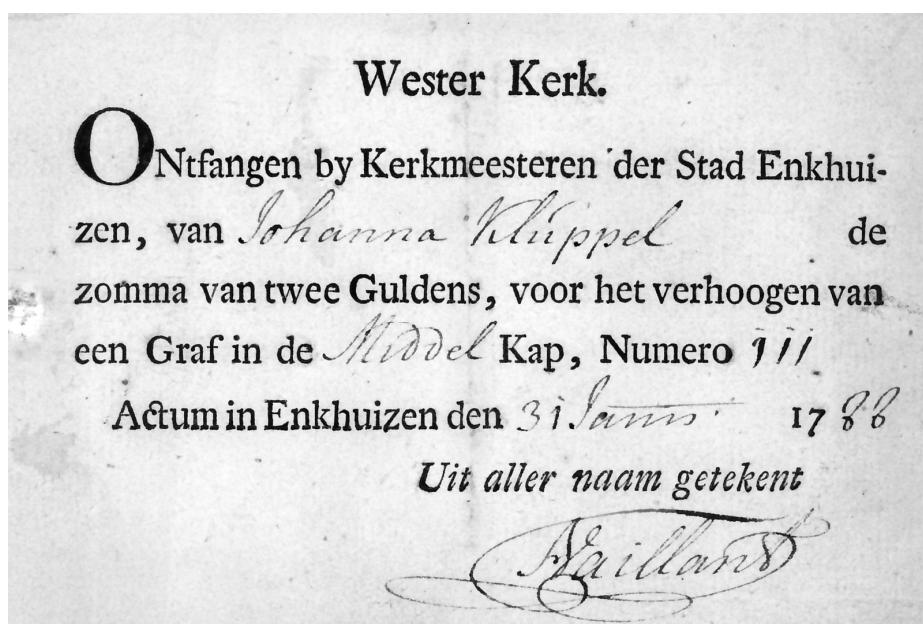 Wester Kerk.
ONtfangen by Kerkmeesteren der Stad Enkhui-
zen, van Johanna Kluppel de
zomma van twee Guldens, voor het verhoogen van
een Graf in de Middel Kap, Numero 111
Actum in Enkhuizen den 31 Janu. 1788
Uit aller naam getekent
Vaillant